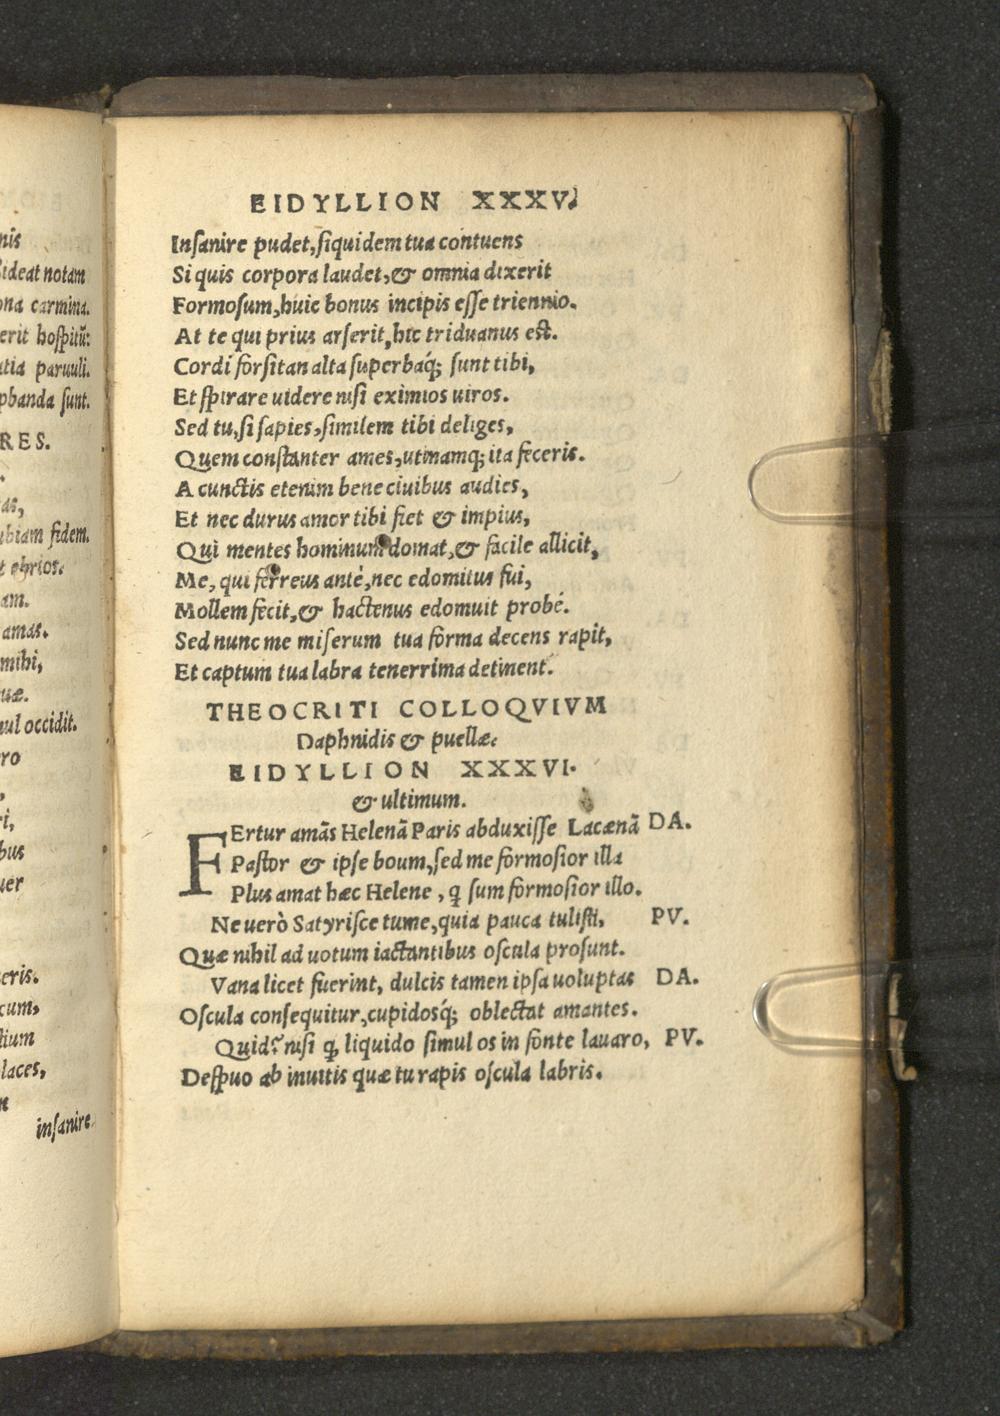 nis
sideat notam
ona carmina.
erit hospitũ:
utia paruuli.
phanda sunt.
RES.
as,
ubiam fidem.
t ebrios.
am.
amas.
mihi,
uæ.
mul occidit.
ro
ri,
bus
uer
eris.
cum,
lium
laces,
insanire.
EIDYLLION XXXV.
Insanire pudet, siquidem tua contuens
Si quis corpora laudet, & omnia dixerit
Formosum, huic bonus incipis esse triennio.
At te qui prius arserit, hic triduanus est.
Cordi forsitan alta superbaq́; sunt tibi,
Et spirare uidere nisi eximios uiros.
Sed tu, si sapies, similem tibi deliges,
Quem constanter ames, utinamq; ita feceris.
A cunctis etenim bene ciuibus audies,
Et nec durus amor tibi fiet & impius,
Qui mentes hominum domat, & facile allicit,
Me, qui ferreus antè, nec edomitus fui,
Mollem fecit, & hactenus edomuit probé.
Sed nunc me miserum tua forma decens rapit,
Et captum tua labra tenerrima detinent.
THEOCRITI COLLOQVIVM
Daphnidis & puellæ.
EIDYLLION XXXVI.
& ultimum.
FErtur amãs Helenã Paris abduxisse Lacænã DA.
Pastor & ipse boum, sed me formosior illa
Plus amat hæc Helene, ꝗ sum formosior illo.
Ne uerò Satyrisce tume, quia pauca tulisti, PV.
Quæ nihil ad uotum iactantibus oscula prosunt.
Vana licet fuerint, dulcis tamen ipsa uoluptas DA.
Oscula consequitur, cupidosq́; oblectat amantes.
Quid? nisi ꝗ liquido simul os in fonte lauaro, PV.
Despuo ab inuitis quæ tu rapis oscula labris.